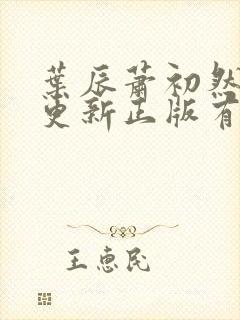 葉辰蕭初然
更新正版有
王惠民